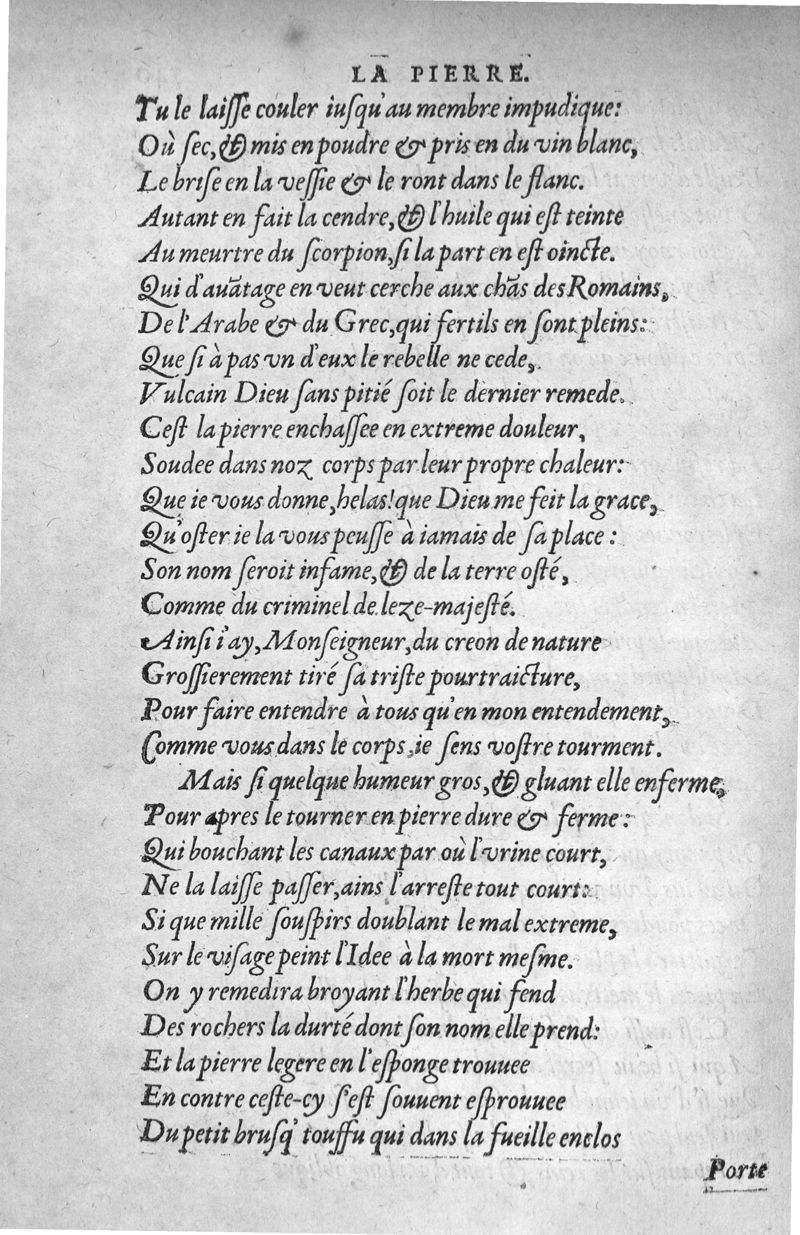 LA PIERRE.
Tu le laiſſe couler iuſqu'au membre impudique:
Où ſec, & mis en poudre & pris en du vin blanc,
Le briſe en la veſſie & le ront dans le flanc.
Autant en fait la cendre, & l'huile qui eſt teinte
Au meurtre du ſcorpion, ſi la part en eſt oincte.
Qui d'auãtage en veut cerche aux chãs des Romains,
De l'Arabe & du Grec, qui fertils en ſont pleins:
Que ſi à pas vn d'eux le rebelle ne cede,
Vulcain Dieu ſans pitié ſoit le dernier remede.
C'eſt la pierre enchaſſee en extreme douleur,
Soudee dans noz corps par leur propre chaleur:
Que ie vous donne, helas! que Dieu me feit la grace,
Qu'oſter ie la vous peuſſe à iamais de ſa place:
Son nom ſeroit infame, & de la terre oſté,
Comme du criminel de leze-majeſté.
Ainſi i'ay, Monſeigneur, du creon de nature
Groſſierement tiré ſa triſte pourtraicture,
Pour faire entendre à tous qu'en mon entendement,
Comme vous dans le corps, ie ſens voſtre tourment.
Mais ſi quelque humeur gros, & gluant elle enferme,
Pour apres le tourner en pierre dure & ferme:
Qui bouchant les canaux par où l'vrine court,
Ne la laiſſe paſſer, ains l'arreſte tout court:
Si que mille ſouſpirs doublant le mal extreme,
Sur le viſage peint l'Idee à la mort meſme.
On y remedira broyant l'herbe qui fend
Des rochers la durté dont ſon nom elle prend:
Et la pierre legere en l'eſponge trouuee
En contre ceſte-cy ſ'eſt ſouuent eſprouuee
Du petit bruſq' touffu qui dans la fueille enclos
Porte